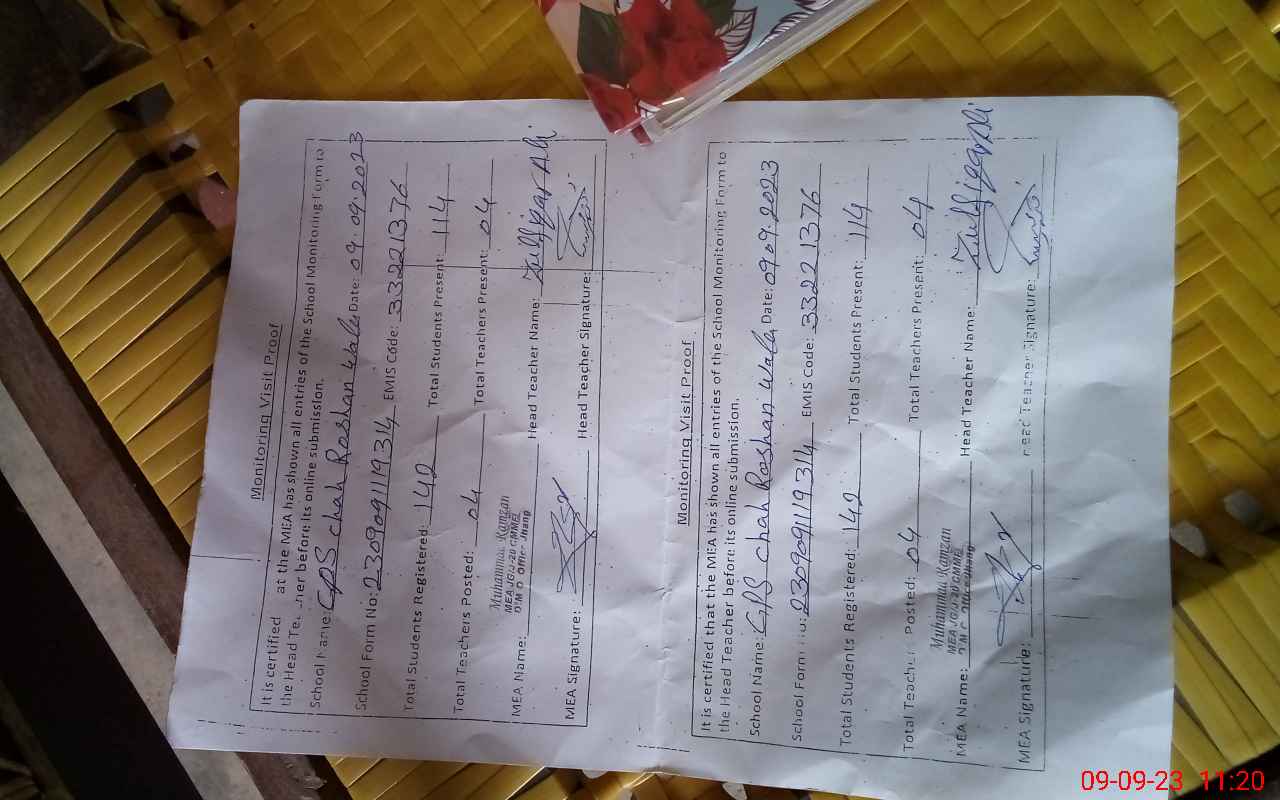 Monitoring Visit Proof
It is certified at the MEA has shown all entries of the School Monitoring Form to
the Head Te ner before its online submission.
School Name: GPS chah Roshan Wala Date: 09.09.2023
School Form No: 2309091119314 EMIS Code: 33221376
Total Students Registered: 142 Total Students Present: 114
Total Teachers Posted: 04 Total Teachers Present: 04
Muhammad Ramzan
MEA JG-J-20 CMMEI
D M O Office Jhang
MEA Name: Head Teacher Name: Zulfiqar Ali
MEA Signature: Head Teacher Signature:
Monitoring Visit Proof
It is certified that the MEA has shown all entries of the School Monitoring Form to
the Head Teacher before its online submission.
School Name: GPS chah Roshan Wala Date: 09.09.2023
School Form : 2309091119314 EMIS Code: 33221376
Total Students Registered: 142 Total Students Present: 114
Total Teache Posted: 04 Total Teachers Present: 04
Muhammad Ramzan
MEA JG-J-20 CMMEI
D M O Office Jhang
MEA Name: Head Teacher Name: Zulfiqar Ali
MEA Signature: Head Teacher Signature:
09-09-23 11:20